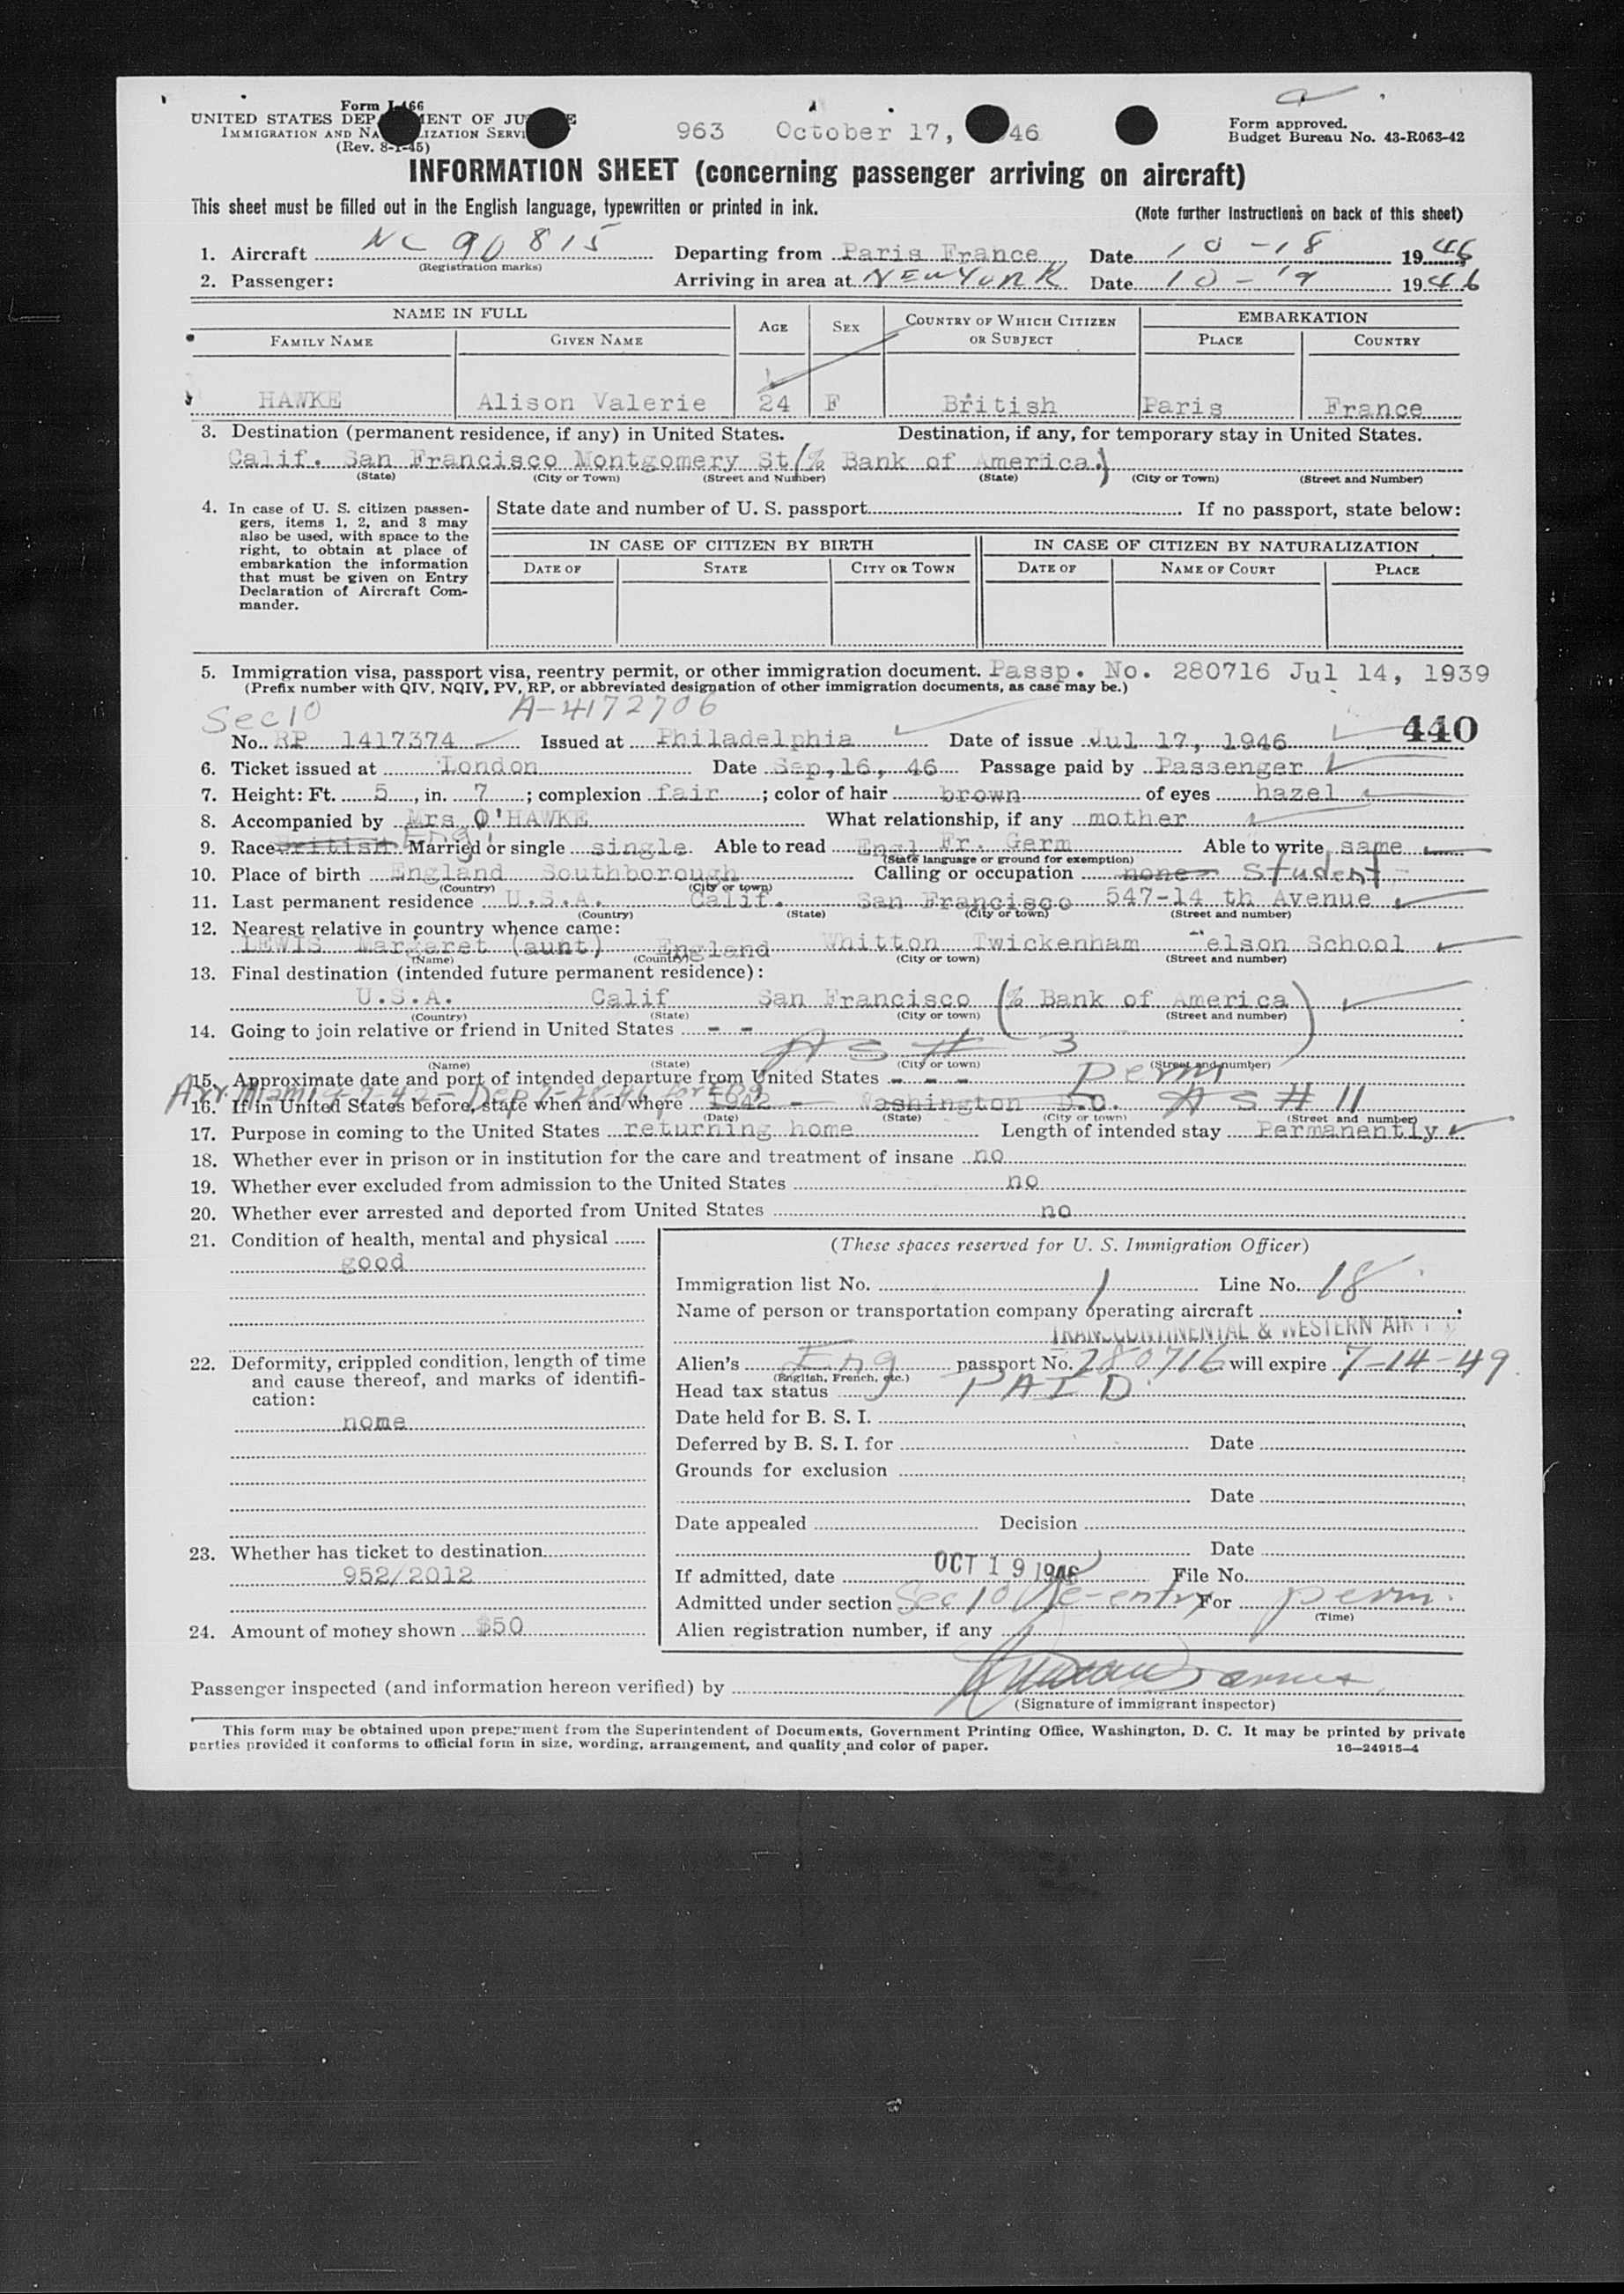 Form I-466
UNITED STATES DEP MENT OF JU E
IMMIGRATION AND NA LIZATION SERVI
(Rev. 8-1-45)
963 October 17, 46
Form approved.
Budget Bureau No. 43-R063-42
INFORMATION SHEET (concerning passenger arriving on aircraft)
This sheet must be filled out in the English language, typewritten or printed in ink.
(Note further instructions on back of this sheet)
1. Aircraft NC 90815 Departing from Paris France Date 10-18 1946
(Registration marks)
2. Passenger: Arriving in area at NEW YORK Date 10-19 1946
NAME IN FULL AGE SEX COUNTRY OF WHICH CITIZEN OR SUBJECT EMBARKATION
FAMILY NAME GIVEN NAME PLACE COUNTRY
HAWKE Alison Valerie 24 F British Paris France
3. Destination (permanent residence, if any) in United States. Destination, if any, for temporary stay in United States.
Calif. San Francisco Montgomery St (% Bank of America)
(State) (City or Town) (Street and Number) (State) (City or Town) (Street and Number)
4. In case of U. S. citizen passen-
gers, items 1, 2, and 3 may
also be used, with space to the
right, to obtain at place of
embarkation the information
that must be given on Entry
Declaration of Aircraft Com-
mander.
State date and number of U. S. passport If no passport, state below:
IN CASE OF CITIZEN BY BIRTH IN CASE OF CITIZEN BY NATURALIZATION
DATE OF STATE CITY OR TOWN DATE OF NAME OF COURT PLACE
5. Immigration visa, passport visa, reentry permit, or other immigration document. Passp. No. 280716 Jul 14, 1939
(Prefix number with QIV, NQIV, PV, RP, or abbreviated designation of other immigration documents, as case may be.)
Sec 10 A-4172706
No. RP 1417374 Issued at Philadelphia Date of issue Jul 17, 1946 440
6. Ticket issued at London Date Sep, 16, 46 Passage paid by Passenger
7. Height: Ft. 5, in. 7; complexion fair; color of hair brown of eyes hazel
8. Accompanied by Mrs O'HAWKE What relationship, if any mother
9. Race British Eng Married or single single Able to read Engl Fr. Germ Able to write same
(State language or ground for exemption)
10. Place of birth England Southborough Calling or occupation none Student
(Country) (City or town)
11. Last permanent residence U.S.A. Calif. San Francisco 547-14 th Avenue
(Country) (State) (City or town) (Street and number)
12. Nearest relative in country whence came:
LEWIS Margaret (aunt) England Whitton Twickenham elson School
(Name) (Country) (City or town) (Street and number)
13. Final destination (intended future permanent residence):
U.S.A. Calif San Francisco (% Bank of America)
(Country) (State) (City or town) (Street and number)
14. Going to join relative or friend in United States - -
AS # 3
(Name) (State) (City or town) (Street and number)
15. Approximate date and port of intended departure from United States - - - Perm
Arr. Miami 9-7-42 - Dep 7-28-46 for Eng
16. If in United States before, state when and where 1942 - Washington D.C. AS # 11
(Date) (State) (City or town) (Street and number)
17. Purpose in coming to the United States returning home Length of intended stay Permanently
18. Whether ever in prison or in institution for the care and treatment of insane no
19. Whether ever excluded from admission to the United States no
20. Whether ever arrested and deported from United States no
21. Condition of health, mental and physical
good
22. Deformity, crippled condition, length of time
and cause thereof, and marks of identifi-
cation:
nome
23. Whether has ticket to destination
952/2012
24. Amount of money shown $50
(These spaces reserved for U. S. Immigration Officer)
Immigration list No. 1 Line No. 18
Name of person or transportation company operating aircraft
TRANSCONTINENTAL & WESTERN AIR
Alien's Eng passport No. 280716 will expire 7-14-49
(English, French, etc.)
Head tax status PAID
Date held for B. S. I.
Deferred by B. S. I. for Date
Grounds for exclusion
Date
Date appealed Decision
Date
If admitted, date OCT 19 1946 File No.
Admitted under section Sec 10 Re-entry For perm.
(Time)
Alien registration number, if any
Passenger inspected (and information hereon verified) by
(Signature of immigrant inspector)
This form may be obtained upon prepayment from the Superintendent of Documents, Government Printing Office, Washington, D. C. It may be printed by private
parties provided it conforms to official form in size, wording, arrangement, and quality and color of paper. 16-24915-4